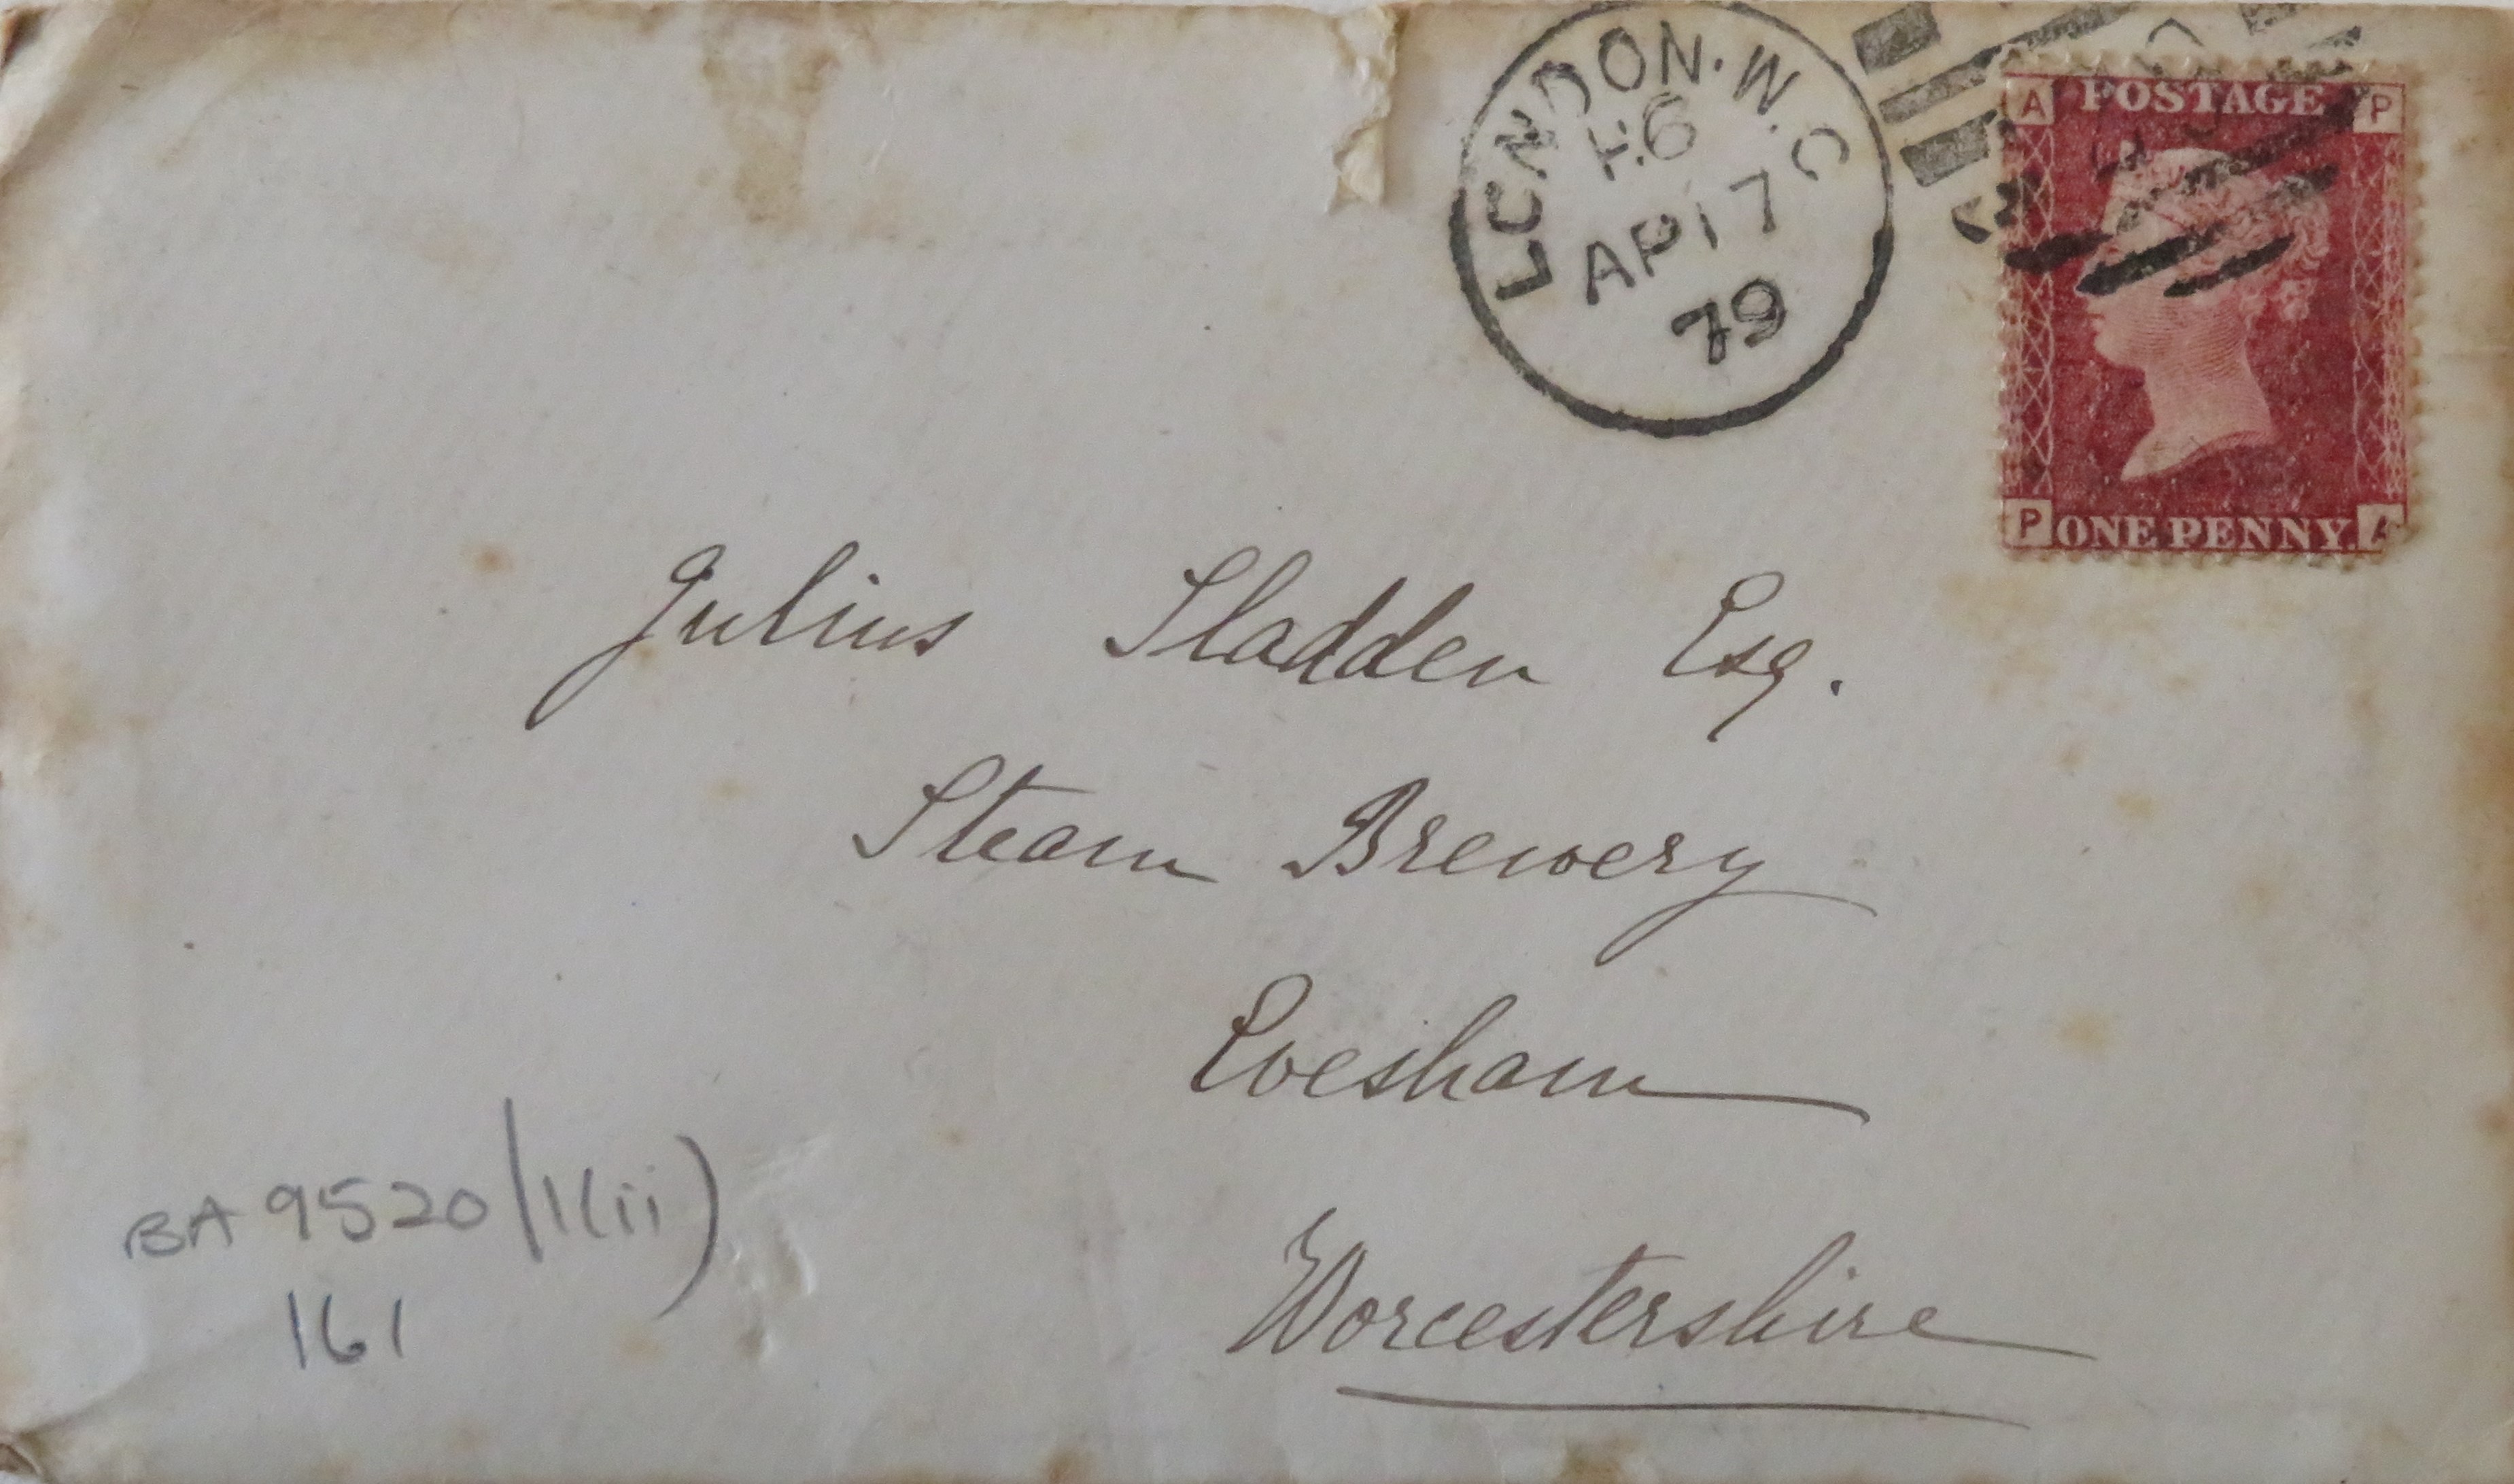 LONDON. W. C
F6
AP 17
79
A POSTAGE P
P ONE PENNY. A
Julius Sladden Esq.
Steam Brewery
Evesham
Worcestershire
BA 9520/1(ii)
161